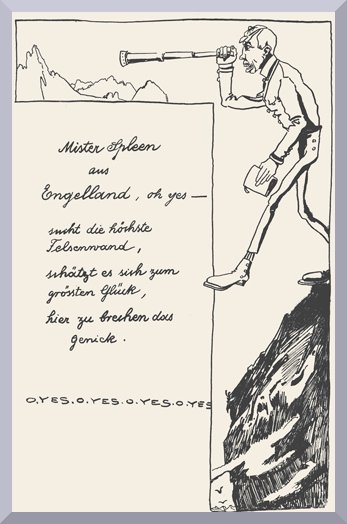 Mister Spleen
aus
Engelland, oh yes —
sucht die höchste
Felsenwand,
schätzt es sich zum
grössten Glück,
hier zu brechen das
Genick.
O, YES, O, YES, O, YES, O, YES